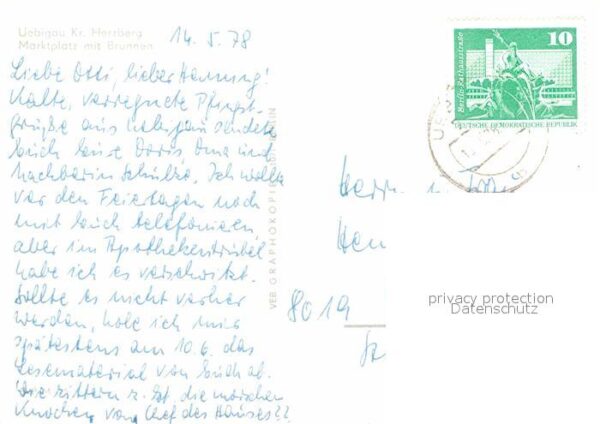 Uebigau Kr. Herzberg
Marktplatz mit Brunnen
14. 5. 78
Liebe Otti, lieber Henning!
Kalte, verregnete Pfingst-
grüße aus Uebigau sendet
Euch Eure Doris, Oma und
Nachbarin Schulze. Ich wollte
vor den Feiertagen noch
mit Euch telefonieren,
aber im Apothekentrubel
habe ich es verschwitzt.
Sollte es nicht vorher
werden, hole ich mir
spätestens am 10.6. das
Lesematerial von Euch ab.
Wie zittern z. Zt. die morschen
Knochen vom Chef des Hauses??
VEB GRAPHOKOPIE
Berlin-Rathausstraße
10
DEUTSCHE DEMOKRATISCHE REPUBLIK
Herrn
8019
privacy protection
Datenschutz